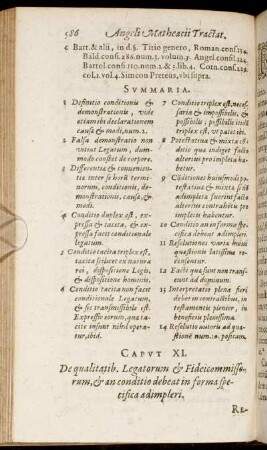 586 Angeli Matheacii Tractat.
c Batt. & alii, in d.§. Titio genero, Roman. cons. 134.
Bald. cons. 286. num. 3. volum. 5. Angel. cons.
Bartol. cons. 110. num. 2. & 2. lib. 4. Corn. cons. 229.
col. 1. vol. 4. Simeon Preteus, vbi supra.
SVMMARIA.
1 Definitio conditionis &
demonstrationis, vide
etiam ibi declarationem
causæ & modi, num. 2.
2 Falsa demonstratio non
vitiat Legatum, dummodo
constet de corpore.
3 Differentia & conuenientia
inter se horū terminorum,
conditionis, demonstrationis,
causæ, &
modi.
4 Conditio duplex est, expressa
& tacita, & expressa
facit conditionale
legatum.
5 Conditio tacita triplex est,
tacita scilicet ex natura
rei, dispositione Legis,
& dispositione hominis.
6 Conditio tacita non facet
conditionale Legatum,
& sic transmissibile est.
Expressio eorum, quæ
tacite insunt nihil operatur,
ibid.
7 Conditio triplex est, necessaria
& impossibilis, &
possibilis, possibilis etiã
triplex est, vt patet ibi.
8 Potestatiua & mixta conditio
quæ indiget facto
alterius pro impleta habetur.
9 Cõditiones huiusmodi potestatiua
& mixta si nõ
adimpleta fuerint facto
alterius non pro
impletis habentur.
10 Conditio in forma specifica
debeat adimpleri.
11 Resolutiones variæ huius
quæstionis latissime
recensentur.
12 Facti quæ sunt non transeunt
ad dignum.
13 Interpretatio plena fieri
debet in contractibus, in
testamentis plenior, in
beneficiis plenissima.
14 Resolutio autoris ad quæstionē
num. 10. positam.
CAPVT XI.
De qualitatib. Legatorum & Fideicommissorum,
& an conditio debeat in forma specifica
adimpleri.
RE-